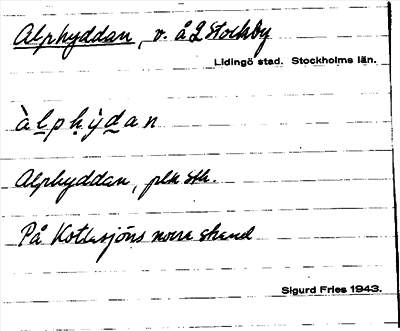 Alphyddan, v. å 2 Stockby
Lidingö stad. Stockholms län.
àlphỳdan
Alphyddan, plk stk.
På Kottlasjöns norra strand
Sigurd Fries 1943.